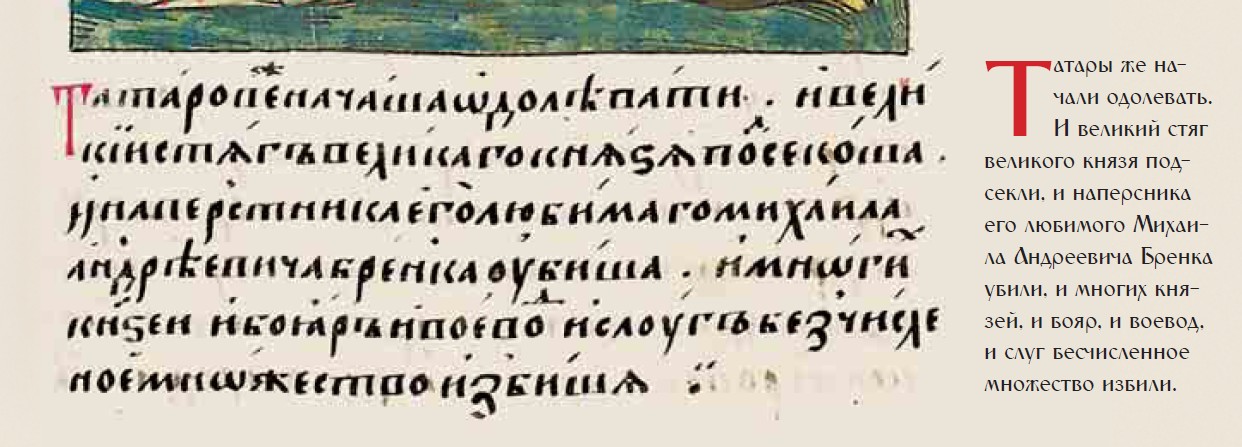 Татаровѐ начаша ѡдолѣвати. и вели
кїи стягъ великаго кнѧѕѧ подсекоша.
и наперстника его любимаго михаила
андрѣевича бренка оубиша. и мнѡги
кнѕеи и бояръ и воевод и слоугъ безчисле
ное мнѡжество избишѧ
Татары же на-
чали одолевать.
И великий стяг
великого князя под-
секли, и наперсника
его любимого Михаи-
ла Андреевича Бренка
убили, и многих кня-
зей, и бояр, и воевод,
и слуг бесчисленное
множество избили.